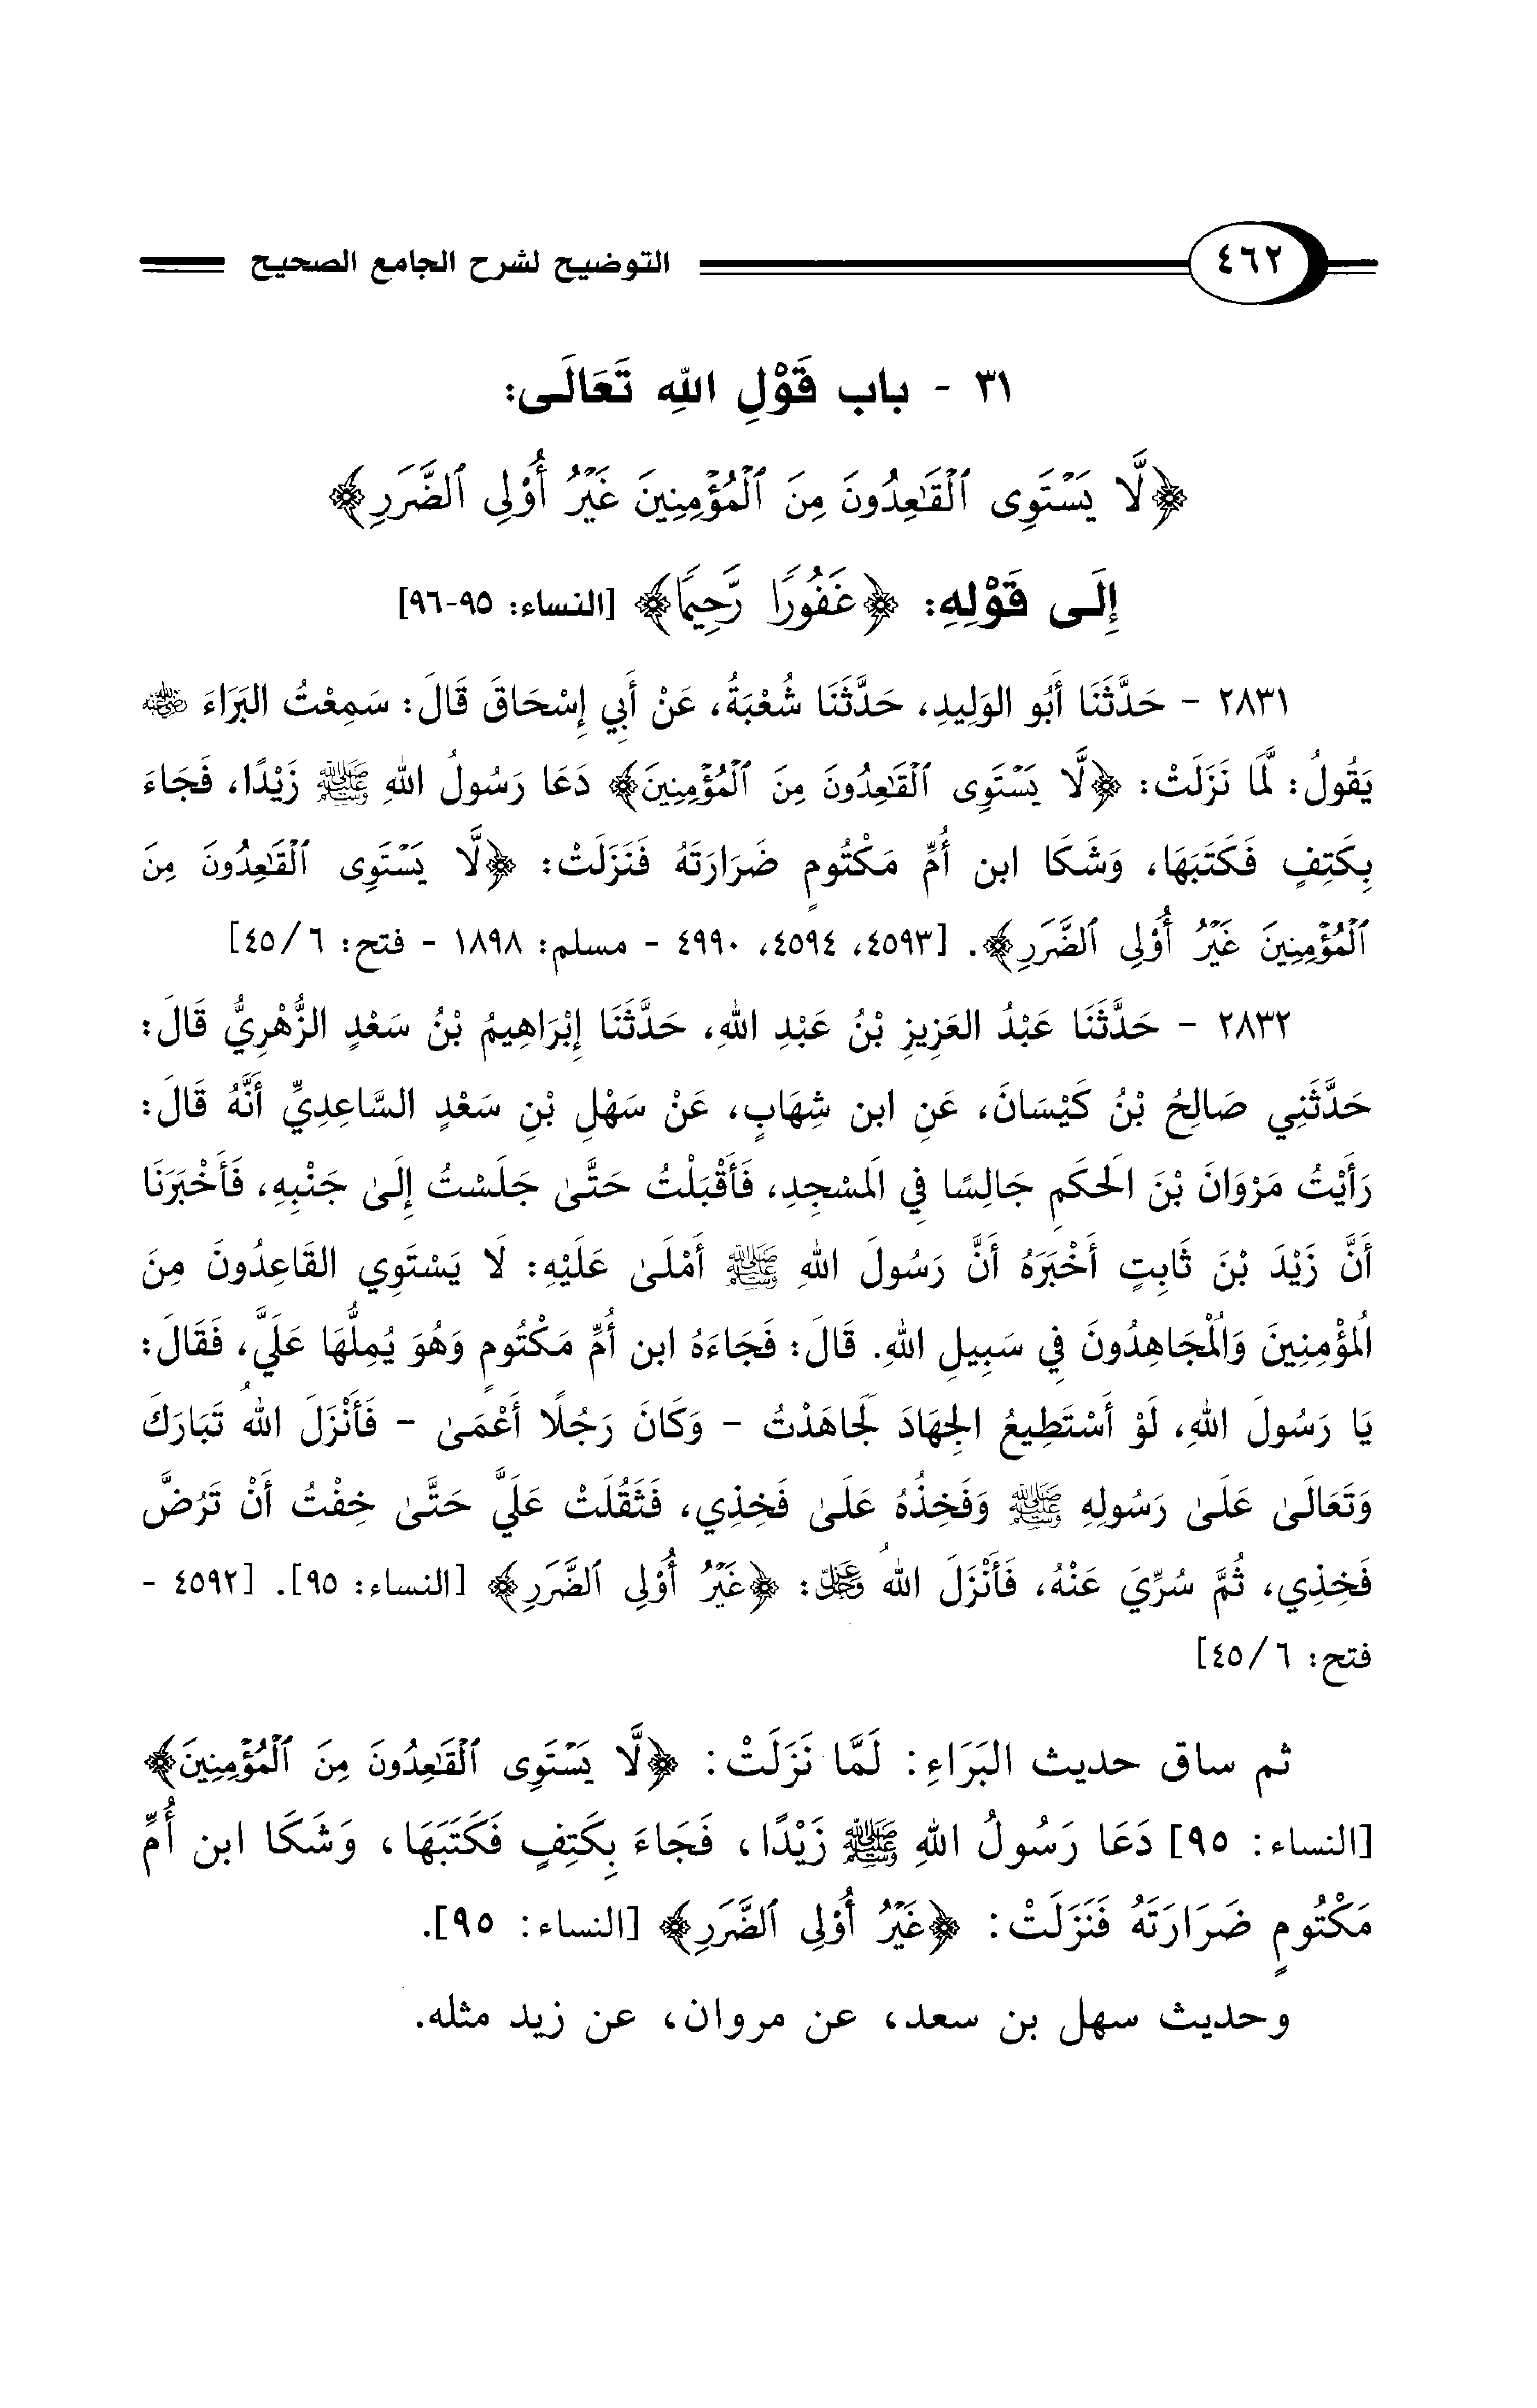 ٤٦٢ التوضيح لشرح الجامع الصحيح
٣١ - باب قَوْلِ اللهِ تَعَالَى:
﴿لَّا يَسْتَوِى ٱلْقَـٰعِدُونَ مِنَ ٱلْمُؤْمِنِينَ غَيْرُ أُوْلِى ٱلضَّرَرِ﴾
إِلَى قَوْلِهِ: ﴿غَفُورًا رَّحِيمًا﴾ [النساء: ٩٥-٩٦]
٢٨٣١ - حَدَّثَنَا أَبُو الوَلِيدِ، حَدَّثَنَا شُعْبَةُ، عَنْ أَبِي إِسْحَاقَ قَالَ: سَمِعْتُ البَرَاءَ رضي الله عنه
يَقُولُ: لَمَّا نَزَلَتْ: ﴿لَّا يَسْتَوِى ٱلْقَـٰعِدُونَ مِنَ ٱلْمُؤْمِنِينَ﴾ دَعَا رَسُولُ اللهِ ﷺ زَيْدًا، فَجَاءَ
بِكَتِفٍ فَكَتَبَهَا، وَشَكَا ابن أُمِّ مَكْتُومٍ ضَرَارَتَهُ فَنَزَلَتْ: ﴿لَّا يَسْتَوِى ٱلْقَـٰعِدُونَ مِنَ
ٱلْمُؤْمِنِينَ غَيْرُ أُوْلِى ٱلضَّرَرِ﴾. [٤٥٩٣، ٤٥٩٤، ٤٩٩٠ - مسلم: ١٨٩٨ - فتح: ٦/ ٤٥]
٢٨٣٢ - حَدَّثَنَا عَبْدُ العَزِيزِ بْنُ عَبْدِ اللهِ، حَدَّثَنَا إِبْرَاهِيمُ بْنُ سَعْدٍ الزُّهْرِيُّ قَالَ:
حَدَّثَنِي صَالِحُ بْنُ كَيْسَانَ، عَنِ ابن شِهَابٍ، عَنْ سَهْلِ بْنِ سَعْدٍ السَّاعِدِيِّ أَنَّهُ قَالَ:
رَأَيْتُ مَرْوَانَ بْنَ الَحكَمِ جَالِسًا فِي اَلمسْجِدِ، فَأَقْبَلْتُ حَتَّىٰ جَلَسْتُ إِلَىٰ جَنْبِهِ، فَأَخْبَرَنَا
أَنَّ زَيْدَ بْنَ ثَابِتٍ أَخْبَرَهُ أَنَّ رَسُولَ اللهِ ﷺ أَمْلَىٰ عَلَيْهِ: لَا يَسْتَوِي القَاعِدُونَ مِنَ
اُلمؤْمِنِينَ وَاُلْمجَاهِدُونَ فِي سَبِيلِ اللهِ. قَالَ: فَجَاءَهُ ابن أُمِّ مَكْتُومٍ وَهُوَ يُمِلُّهَا عَلَيَّ، فَقَالَ:
يَا رَسُولَ اللهِ، لَوْ أَسْتَطِيعُ الِجهَادَ لَجَاهَدْتُ - وَكَانَ رَجُلًا أَعْمَىٰ - فَأَنْزَلَ اللهُ تَبَارَكَ
وَتَعَالَىٰ عَلَىٰ رَسُولِهِ ﷺ وَفَخِذُهُ عَلَىٰ فَخِذِي، فَثَقُلَتْ عَلَيَّ حَتَّىٰ خِفْتُ أَنْ تَرُضَّ
فَخِذِي، ثُمَّ سُرِّيَ عَنْهُ، فَأَنْزَلَ اللهُ عز وجل: ﴿غَيْرُ أُوْلِى ٱلضَّرَرِ﴾ [النساء: ٩٥]. [٤٥٩٢ -
فتح: ٦/ ٤٥]
ثم ساق حديث البَرَاءِ: لَمَّا نَزَلَتْ: ﴿لَّا يَسْتَوِى ٱلْقَـٰعِدُونَ مِنَ ٱلْمُؤْمِنِينَ﴾
[النساء: ٩٥] دَعَا رَسُولُ اللهِ ﷺ زَيْدًا، فَجَاءَ بِكَتِفٍ فَكَتَبَهَا، وَشَكَا ابن أُمِّ
مَكْتُومٍ ضَرَارَتَهُ فَنَزَلَتْ: ﴿غَيْرُ أُوْلِى ٱلضَّرَرِ﴾ [النساء: ٩٥].
وحديث سهل بن سعد، عن مروان، عن زيد مثله.